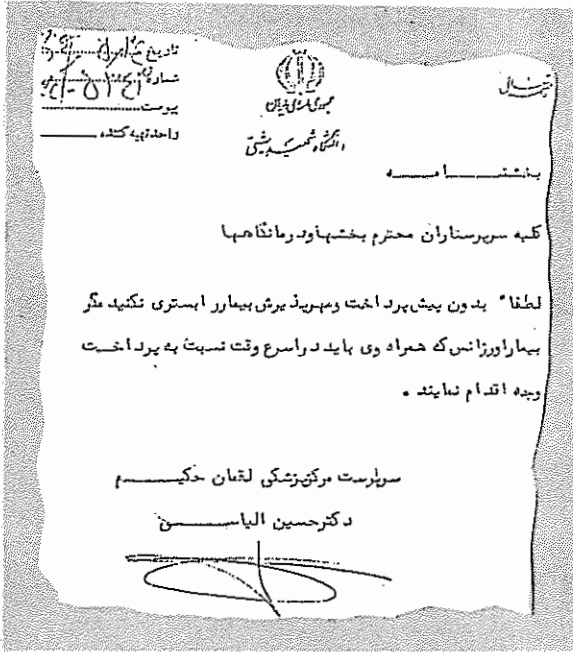 تاریخ
شماره
پیوست
واحد تهیه کننده
جمهوری اسلامی ایران
دانشگاه شهید بهشتی
بخشنامه
کلیه سرپرستاران محترم بخشها و درمانگاهها
لطفا" بدون پیش پرداخت و مهر پذیرش بیمار را بستری نکنید مگر
بیمار اورژانس که همراه وی باید در اسرع وقت نسبت به پرداخت
وجه اقدام نمایند .
سرپرست مرکز پزشکی لقمان حکیم
دکتر حسین الیاسی